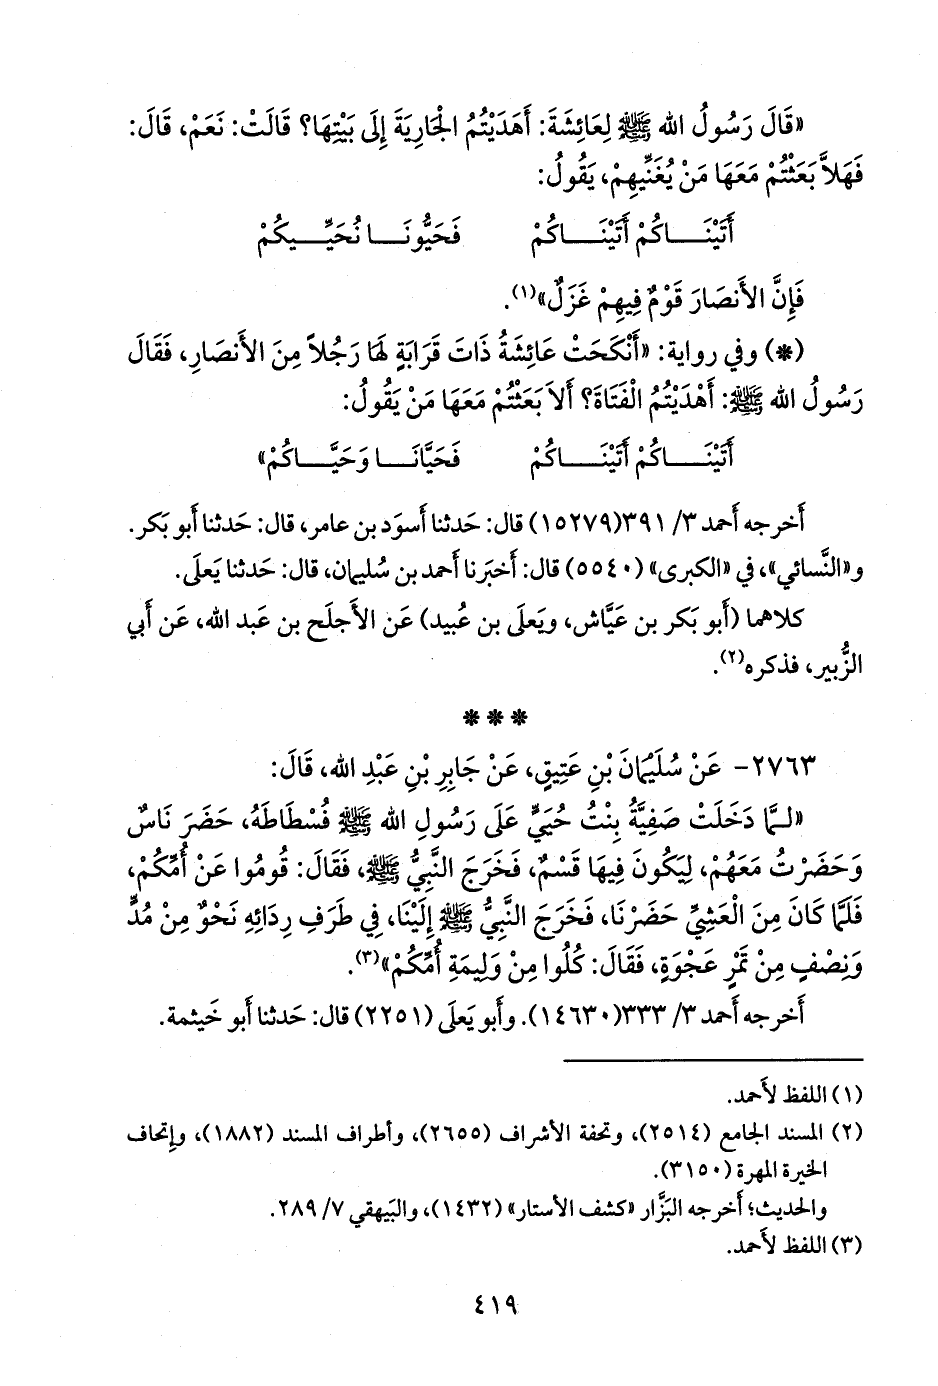 «قَالَ رَسُولُ الله ﷺ لِعَائِشَةَ: أَهَدَيْتُمُ الْجَارِيَةَ إِلَى بَيْتِهَا؟ قَالَتْ: نَعَمْ، قَالَ:
فَهَلاَّ بَعَثْتُمْ مَعَهَا مَنْ يُغَنِّيهِمْ، يَقُولُ:
أَتَيْنَـــاكُمْ أَتَيْنَـــاكُمْ فَحَيُّونَـــا نُحَيِّـــيكُمْ
فَإِنَّ الأَنصَارَ قَوْمٌ فِيهِمْ غَزَلٌ»(١).
(*) وفي رواية: «أَنْكَحَتْ عَائِشَةُ ذَاتَ قَرَابَةٍ لَهَا رَجُلاً مِنَ الأَنصَارِ، فَقَالَ
رَسُولُ الله ﷺ: أَهْدَيْتُمُ الْفَتَاةَ؟ أَلاَ بَعَثْتُمْ مَعَهَا مَنْ يَقُولُ:
أَتَيْنَـــاكُمْ أَتَيْنَـــاكُمْ فَحَيَّانَـــا وَحَيَّـــاكُمْ»
أَخرجه أَحمد ٣/ ٣٩١(١٥٢٧٩) قال: حَدثنا أَسوَد بن عامر، قال: حَدثنا أَبو بَكر.
و«النَّسائي»، في «الكبرى» (٥٥٤٠) قال: أَخبَرنا أَحمد بن سُليمان، قال: حَدثنا يَعلَى.
كلاهما (أَبو بَكر بن عَيَّاش، ويَعلَى بن عُبيد) عَن الأَجلَح بن عَبد الله، عَن أَبي
الزُّبير، فذكره(٢).
* * *
٢٧٦٣- عَنْ سُلَيْمَانَ بْنِ عَتِيقٍ، عَنْ جَابِرِ بْنِ عَبْدِ الله، قَالَ:
«لـمَّا دَخَلَتْ صَفِيَّةُ بِنْتُ حُيَيٍّ عَلَى رَسُولِ الله ﷺ فُسْطَاطَهُ، حَضَرَ نَاسٌ
وَحَضَرْتُ مَعَهُمْ، لِيَكُونَ فِيهَا قَسْمٌ، فَخَرَجَ النَّبِيُّ ﷺ، فَقَالَ: قُومُوا عَنْ أُمِّكُمْ،
فَلَمَّا كَانَ مِنَ الْعَشِيِّ حَضَرْنَا، فَخَرَجَ النَّبِيُّ ﷺ إِلَيْنَا، فِي طَرَفِ رِدَائِهِ نَحْوٌ مِنْ مُدٍّ
وَنِصْفٍ مِنْ تَمْرِ عَجْوَةٍ، فَقَالَ: كُلُوا مِنْ وَلِيمَةِ أُمِّكُمْ»(٣).
أَخرجه أَحمد ٣/ ٣٣٣(١٤٦٣٠). وأَبو يَعلَى (٢٢٥١) قال: حَدثنا أَبو خَيثمة.
(١) اللفظ لأَحمد.
(٢) المسند الجامع (٢٥١٤)، وتحفة الأشراف (٢٦٥٥)، وأطراف المسند (١٨٨٢)، وإتحاف
الخيرة المهرة (٣١٥٠).
والحديث؛ أَخرجه البَزَّار «كشف الأستار» (١٤٣٢)، والبَيهقي ٧/ ٢٨٩.
(٣) اللفظ لأَحمد.
٤١٩